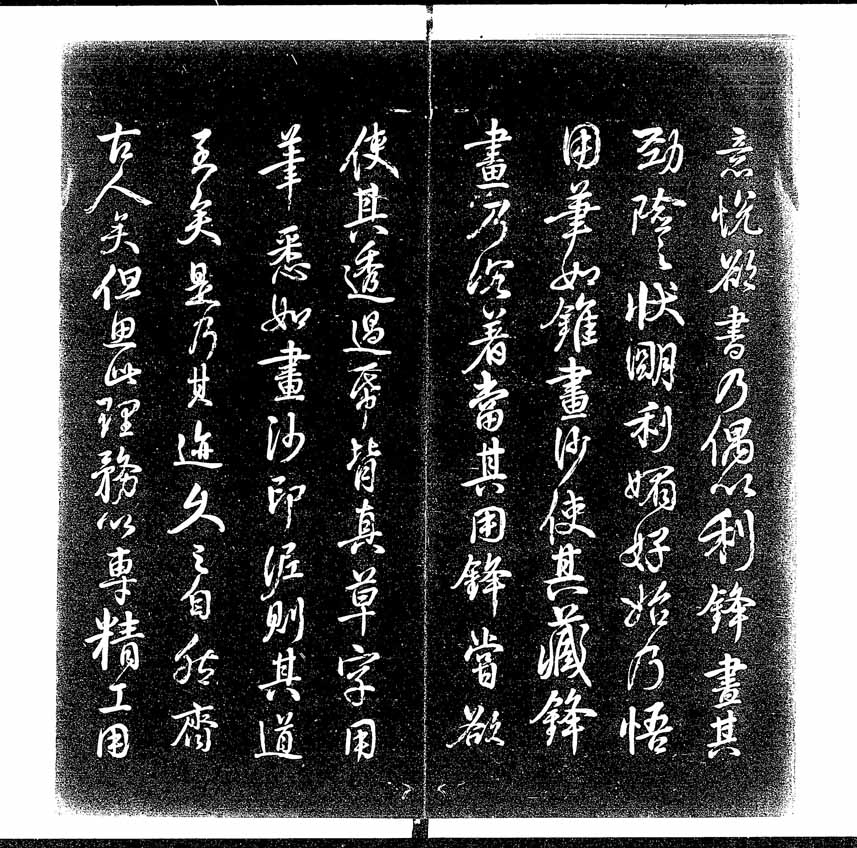 意悦欲書乃偶以利鋒畫其
勁險之狀明利媚好始乃悟
用筆如錐畫沙使其藏鋒
畫乃沉着當其用鋒嘗欲
使其透過紙背真草字用
筆悉如畫沙印泥則其道
至矣是乃其迹久之自然齊
古人矣但思此理務以專精工用